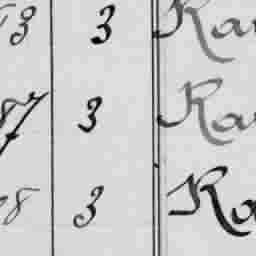 3 3 Ra
87 3 Ra
8 3 Ra